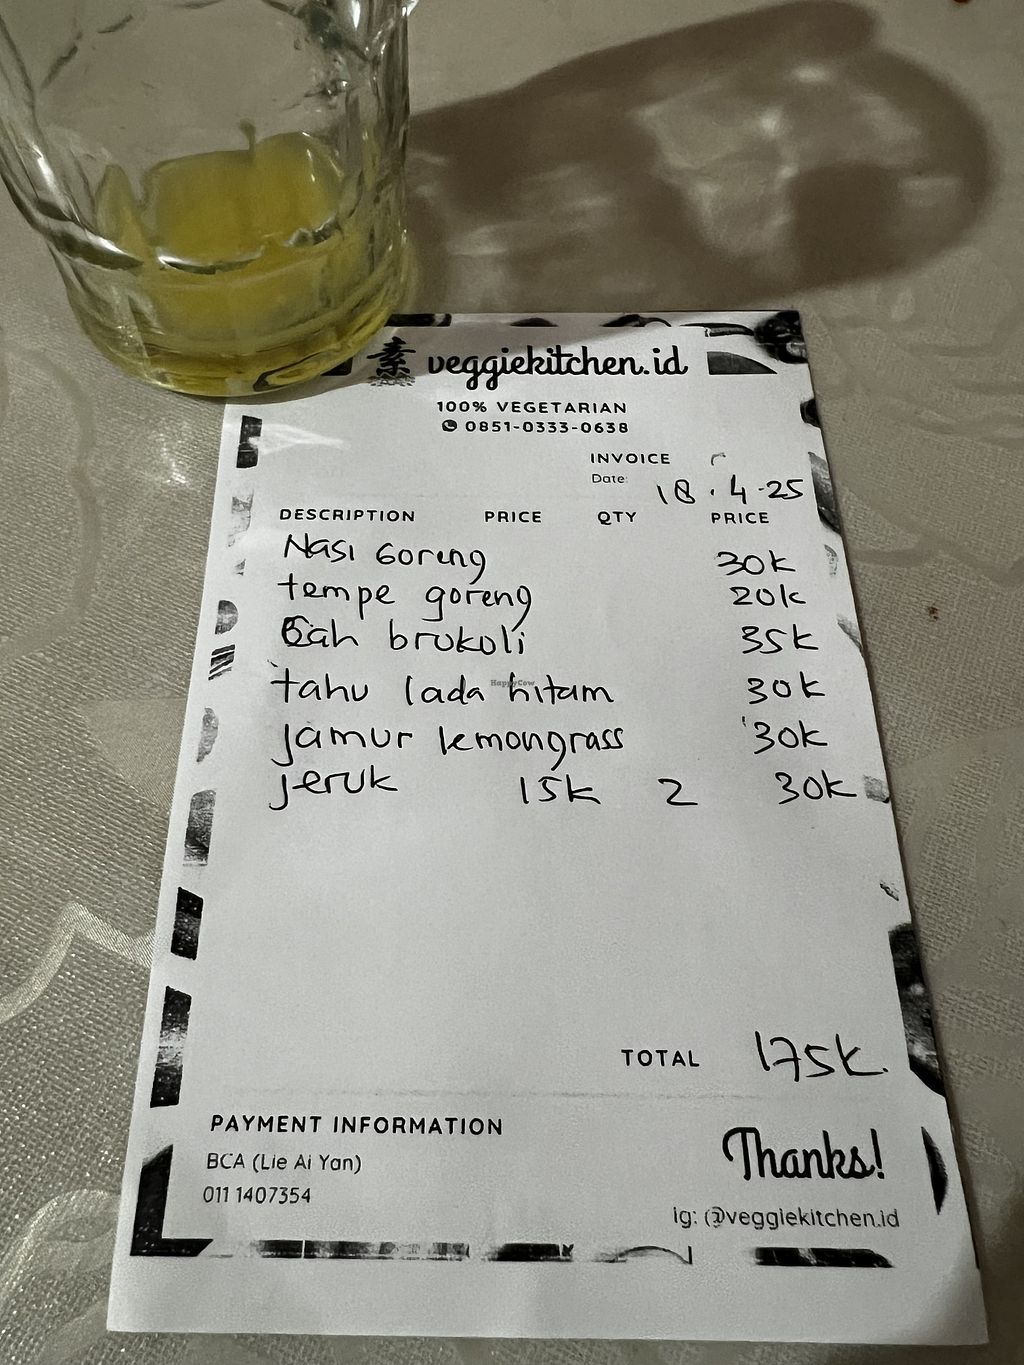 素 veggiekitchen.id
100% VEGETARIAN
0851-0333-0638
INVOICE
Date: 18.4-25
DESCRIPTION PRICE QTY PRICE
Nasi Goreng 30k
tempe goreng 20k
Cah brokoli 35k
tahu lada hitam 30k
HappyCow
jamur lemongrass 30k
jeruk 15k 2 30k
TOTAL 175k
PAYMENT INFORMATION
BCA (Lie Ai Yan)
011 1407354
Thanks!
ig: @veggiekitchen.id